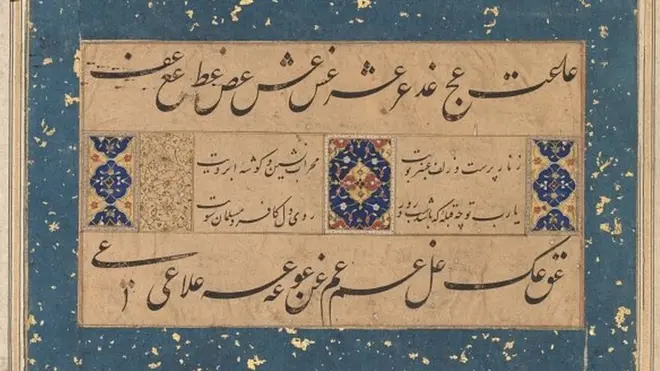 عا عب عج عد عر عس عش عص عط عع عف
زنار پرست زلف عنبر بویت محراب نشین کوشه ابرویت
یا رب تو چه قبله که باشد روی دل کافر و مسلمان سویت
عق عک عل عم عن عو عه علا عی